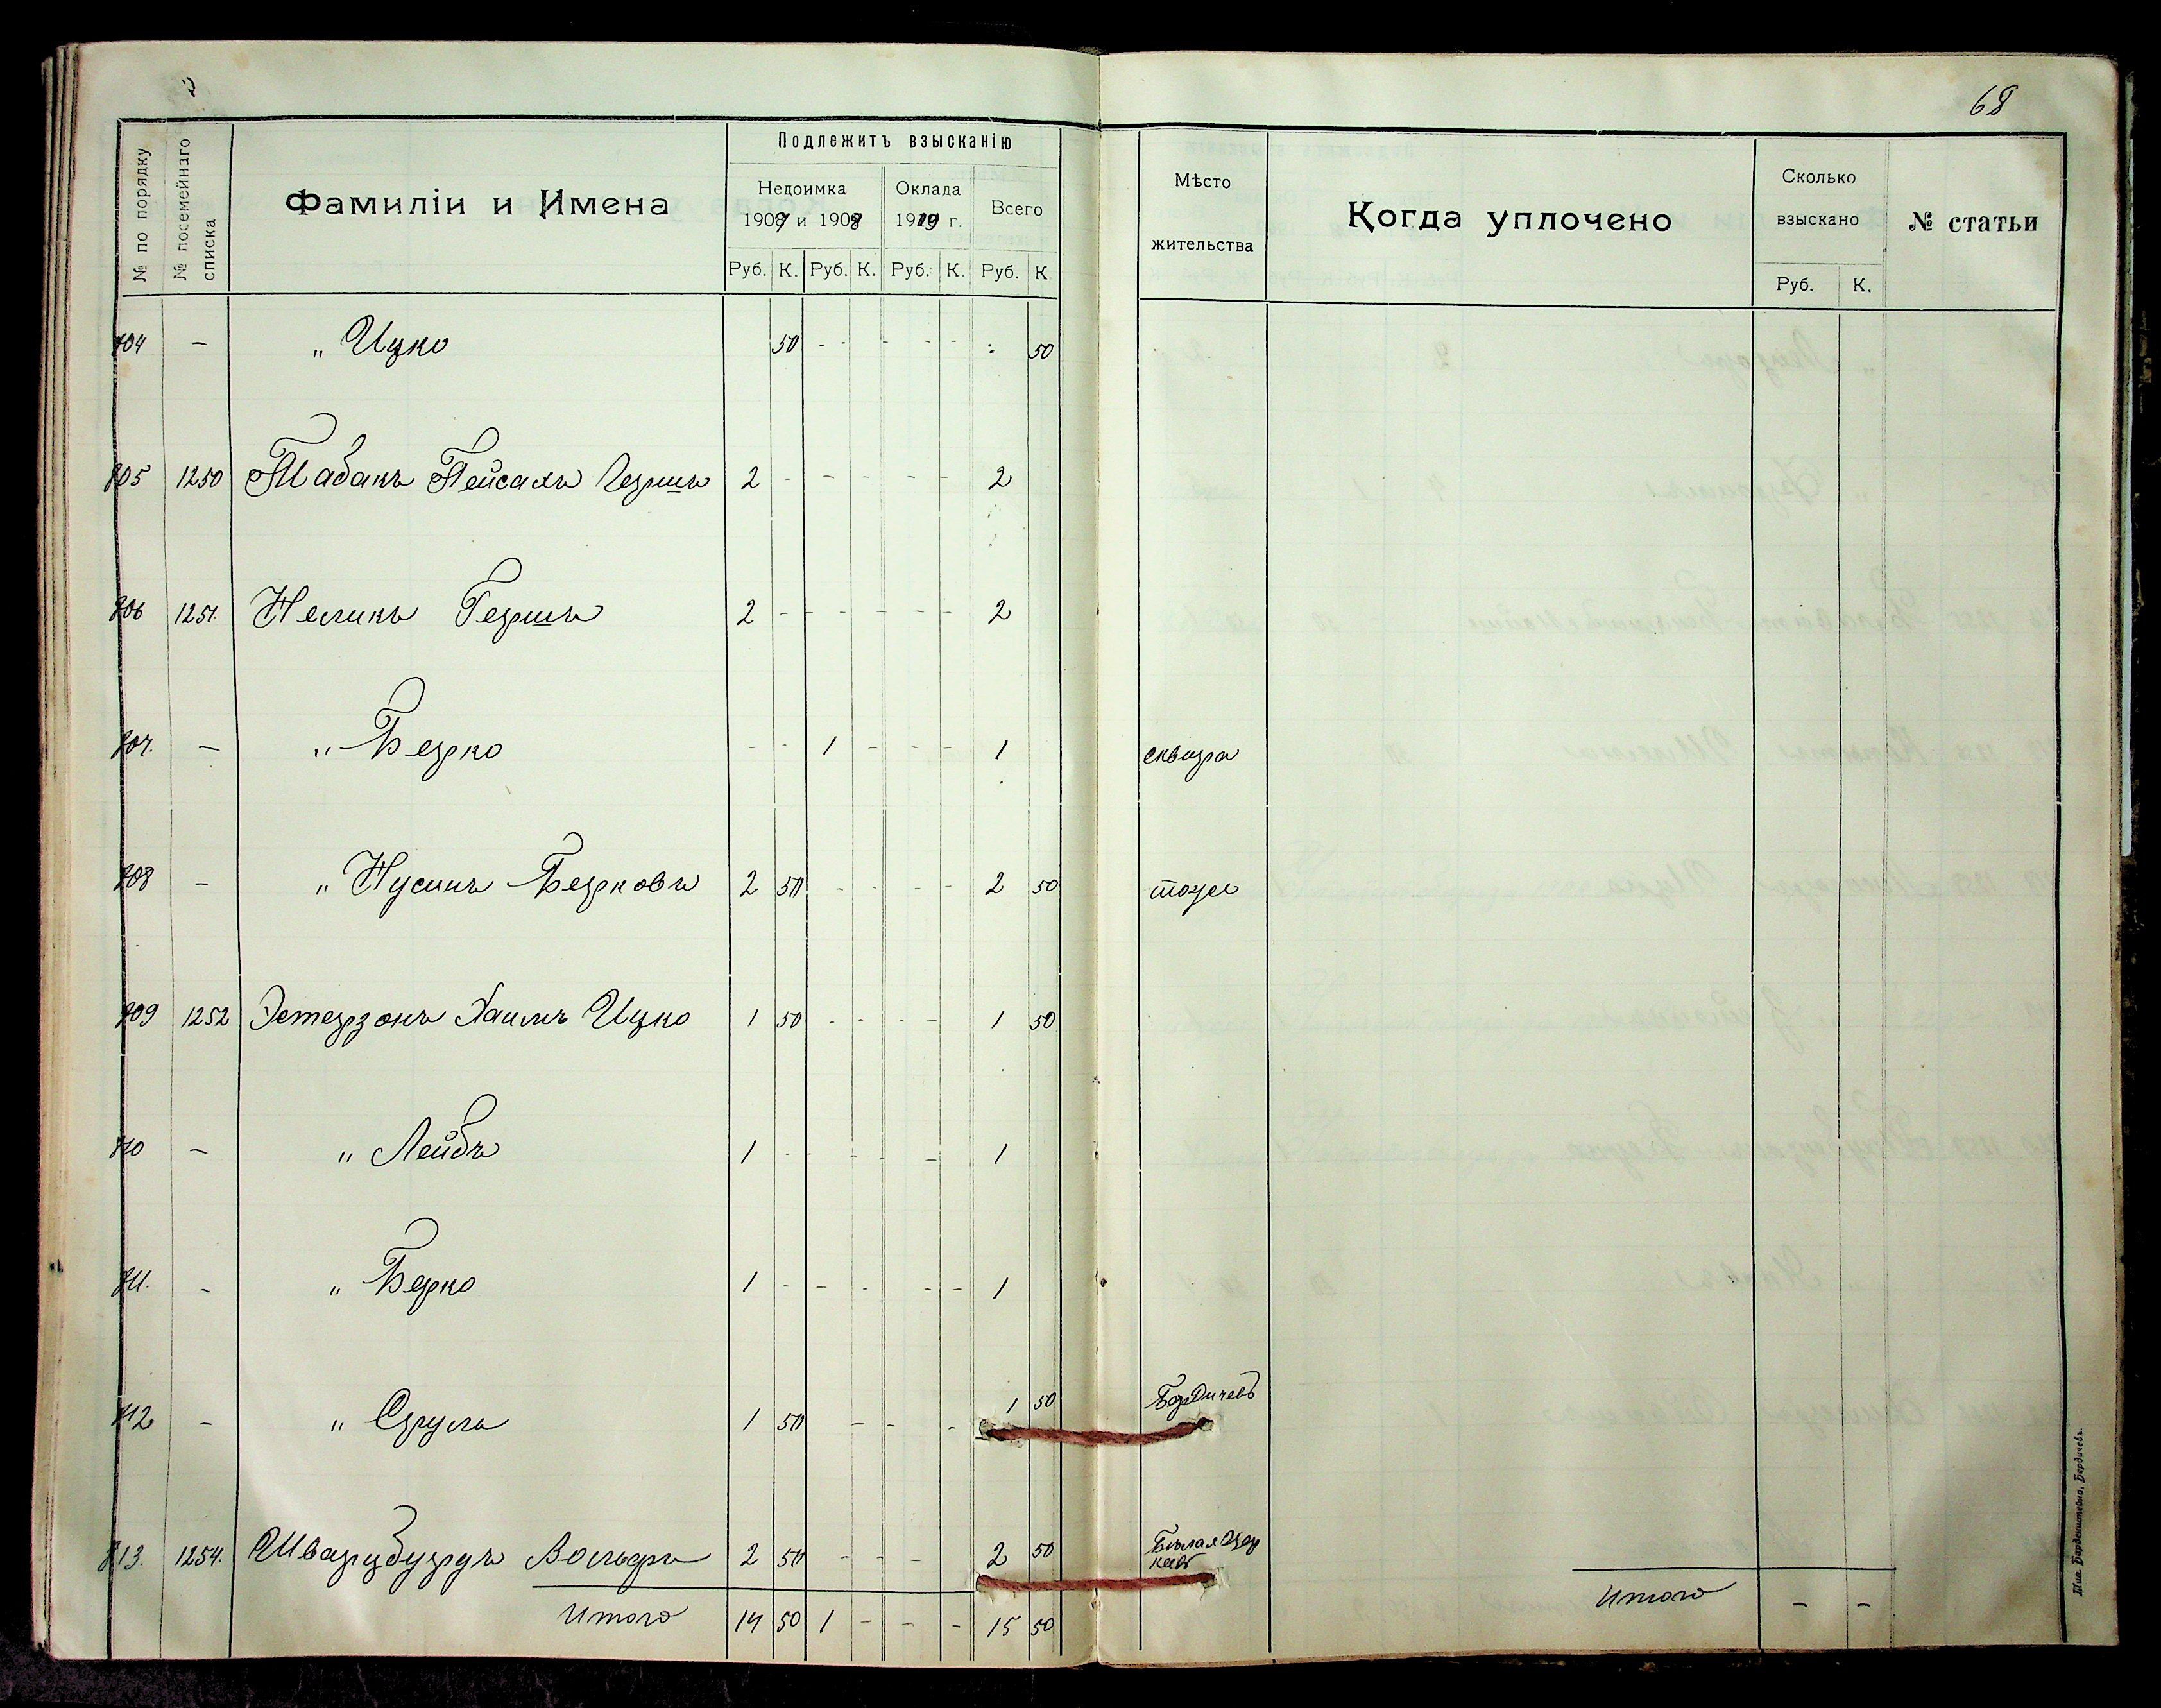 68
№ по порядку
№ посемейнаго списка
Фамиліи и Имена
Подлежитъ взысканію
Недоимка
1907 и 1908
Оклада
1909 г.
Всего
Руб. К. Руб. К. Руб. К. Руб. К.
Мѣсто жительства
Когда уплочено
Сколько взыскано
Руб. К.
№ статьи
704 — „ Ицко 50 - - - - - : 50
705 1250 Табакъ Пейсахъ Гершъ 2 - - - - - 2
706 1251. Неликъ Гершъ 2 - - - - - 2
707. — „ Берко - - 1 - - - 1 сквира
708 - „ Нусинъ Берковъ 2 50 - - - - 2 50 тоже
709 1252 Эстерзонъ Хаимъ Ицко 1 50 - - - - 1 50
710 — „ Лейбъ 1 - - - - 1
711. - „ Берко 1 - - - - - 1
712 - „ Сруль 1 50 - - - 1 50 Бердичевъ
713. 1254. Шварцбурдъ Вольфъ 2 50 - - - 2 50 Бѣлая Церковь
Итого 14 50 1 - - - 15 50
Итого - -
Тип. Барденштейна, Бердичевъ.